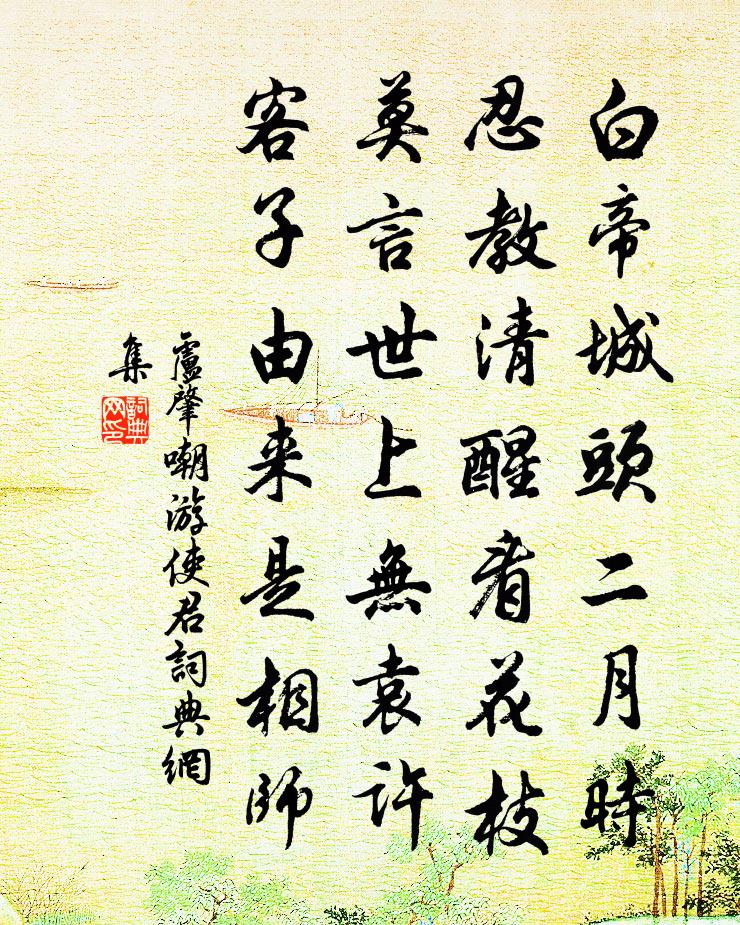 白帝城頭二月時
忍教清醒看花枝
莫言世上無袁許
客子由来是相師
盧肇嘲游使君詞典網
集
詞典
网印